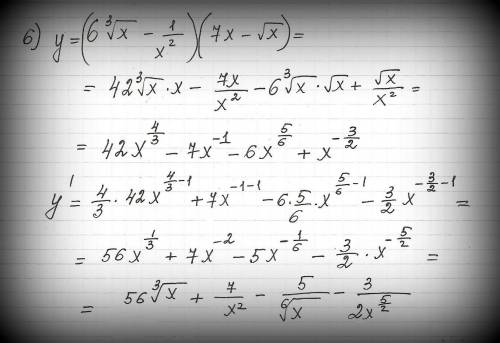 б) y=(6∛x − 1/x²)(7x − √x)=
= 42∛x · x − 7x/x² − 6∛x · √x + √x/x² =
= 42x^(4/3) − 7x^(-1) − 6x^(5/6) + x^(-3/2)
y' = 4/3 · 42x^(4/3-1) + 7x^(-1-1) − 6 · 5/6 · x^(5/6-1) − 3/2 x^(-3/2-1) =
= 56x^(1/3) + 7x^(-2) − 5x^(-1/6) − 3/2 · x^(-5/2) =
= 56∛x + 7/x² − 5/⁶√x − 3/(2x^(5/2))